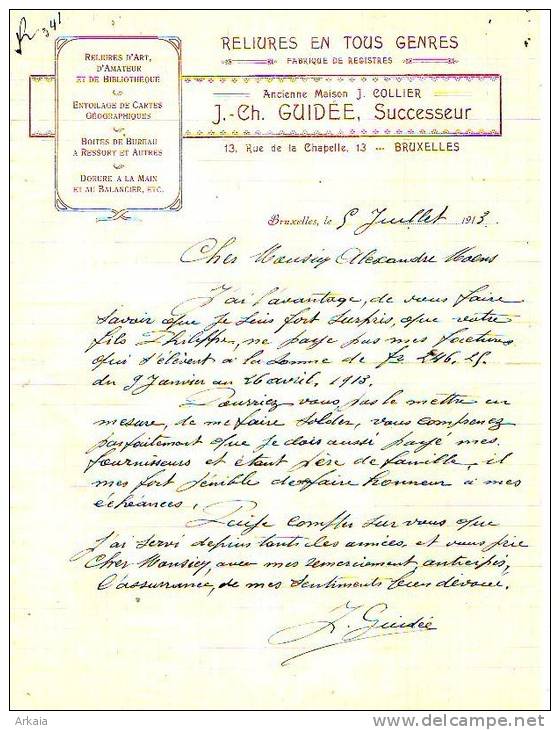 341
RELIURES D'ART,
D'AMATEUR
ET DE BIBLIOTHÈQUE
ENTOILAGE DE CARTES
GÉOGRAPHIQUES
BOITES DE BUREAU
A RESSORT ET AUTRES
DORURE A LA MAIN
ET AU BALANCIER, ETC.
RELIURES EN TOUS GENRES
FABRIQUE DE REGISTRES
Ancienne Maison J. COLLIER
J.-Ch. GUIDÉE, Successeur
13, Rue de la Chapelle, 13 ... BRUXELLES
Bruxelles, le 5 Juillet 1913.
Cher Monsieur Alexandre Moens
J'ai l'avantage, de vous faire
savoir que je suis fort surpris, que votre
fils Philippe, ne paye pas mes factures
qui s'élèvent à la somme de fr 246.25.
du 9 Janvier au 26 avril, 1913.
Pourriez vous pas le mettre en
mesure, de me faire solder, vous comprenez
parfaitement que je dois aussi payé mes
fournisseurs et étant père de famille, il
mes fort pénible de faire honneur à mes
échéances.
Puisse compter sur vous que
j'ai servi depuis tant les années, et vous prie
Cher Monsieur, avec mes remerciement anticipés,
l'assurrance, de mes sentiments bien dévoué.
J. Guidée
Arkaia
www.delcampe.net